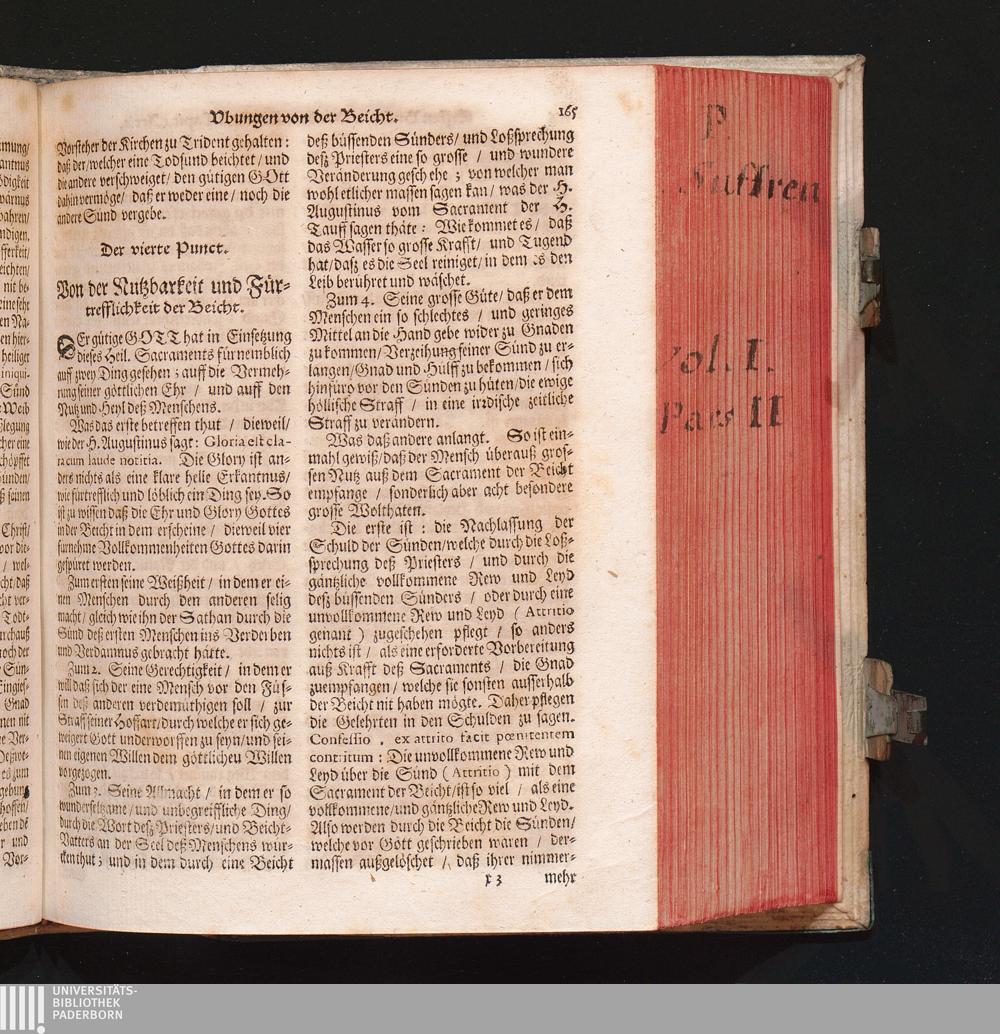 Vbungen von der Beicht. 165
Vorsteher der Kirchen zu Trident gehalten:
daß der/welcher eine Todsund beichtet/und
die andere verschweiget/ den gütigen GOtt
dahin vermöge/ daß er weder eine/ noch die
andere Sünd vergebe.
Der vierte Punct.
Von der Nutzbarkeit und Für-
trefflichkeit der Beicht.
DEr gütige GOTT hat in Einsetzung
dieses Heil. Sacraments fürnemblich
auff zwey Ding gesehen; auff die Vermeh-
rung seiner göttlichen Ehr / und auff den
Nutz und Heyl deß Menschens.
Was das erste betreffen thut / dieweil/
wie der H. Augustinus sagt: Gloria est cla-
racum laude notitia. Die Glory ist an-
ders nichts als eine klare helle Erkantnus/
wie fürtrefflich und löblich ein Ding sey. So
ist zu wissen daß die Ehr und Glory Gottes
in der Beicht in dem erscheine / dieweil vier
furnehme Vollkommenheiten Gottes darin
gespürt werden.
Zum ersten seine Weißheit / in dem er ei-
nen Menschen durch den anderen selig
macht/ gleich wie ihn der Sathan durch die
Sünd deß ersten Menschen ins Verderben
und Verdamnus gebracht hätte.
Zum 2. Seine Gerechtigkeit / in dem er
will daß sich der eine Mensch vor den Füs-
sen deß anderen verdemüthigen soll / zur
Straff seiner Hoffart/durch welche er sich ge-
weigert Gott underworffen zu seyn/und sei-
nen eigenen Willen dem göttlicheu Willen
vorgezogen.
Zum 3. Seine Allmacht / in dem er so
wunderseltzame /und unbegreiffliche Ding/
durch die Wort deß Priesters/und Beicht-
Vatters an der Seel deß Menschens wür-
cken thut; und in dem durch eine Beicht
deß büssenden Sünders/ und Loßsprechung
deß Priesters eine so grosse / und wundere
Veränderung geschehe ; von welcher man
wohl etlicher massen sagen kan/ was der H.
Augustinus vom Sacrament der H.
Tauff sagen thäte: Wie kommet es/ daß
das Wasser so grosse Krafft/ und Tugend
hat/daß es die Seel reiniget/in dem es den
Leib berühret und wäschet.
Zum 4. Seine grosse Güte/ daß er dem
Menschen ein so schlechtes / und geringes
Mittel an die Hand gebe wider zu Gnaden
zu kommen/Verzeihung seiner Sünd zu er-
langen/Gnad und Hülff zu bekommen / sich
hinfüro vor den Sünden zu hüten/die ewige
höllische Straff / in eine irzdische zeitliche
Straff zu verändern.
Was daß andere anlangt. So ist ein-
mahl gewiß/daß der Mensch überauß gros-
sen Nutz auß dem Sacrament der Beicht
empfange / sonderlich aber acht besondere
grosse Wolthaten.
Die erste ist : die Nachlassung der
Schuld der Sünden/welche durch die Loß-
sprechung deß Priesters / und durch die
gäntzliche vollkommene Rew und Leyd
deß büssenden Sünders / oder durch eine
unvollkommene Rew und Leyd ( Attritio
genant ) zugeschehen pflegt / so anders
nichts ist / als eine erforderte Vorbereitung
auß Krafft deß Sacraments / die Gnad
zuempfangen/ welche sie sonsten ausserhalb
der Beicht nit haben mögte. Daher pflegen
die Gelehrten in den Schulden zu sagen.
Confessio , ex attrito facit pœnitentem
contritum : Die unvollkommene Rew und
Leyd über die Sünd ( Attritio ) mit dem
Sacrament der Beicht/ist so viel / als eine
vollkommene/und gäntzliche Rew und Leyd.
Also werden durch die Beicht die Sünden/
welche vor Gott geschrieben waren / der-
massen außgelöschet / daß ihrer nimmer-
x 3 mehr
P.
Suffren
Vol. I.
Pars II
UNIVERSITÄTS-
BIBLIOTHEK
PADERBORN